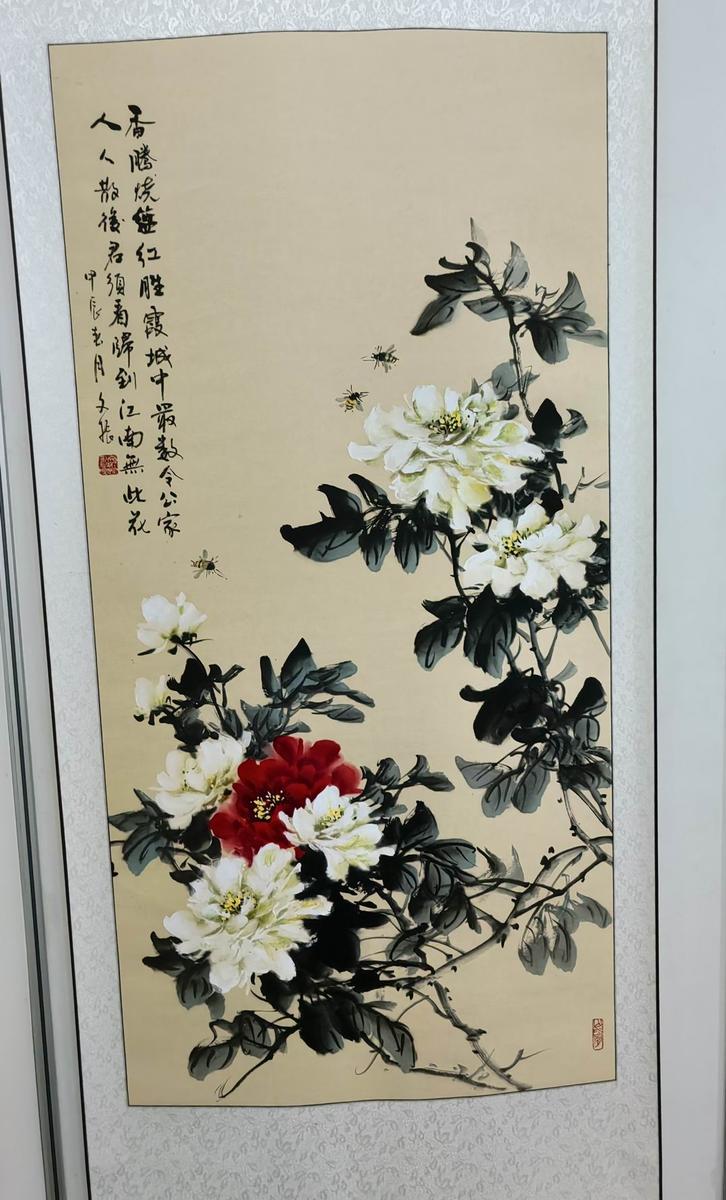 香勝烧蘭红胜霞城中最数令公家
人人散後君須看歸到江南無此花
甲辰春月 文振